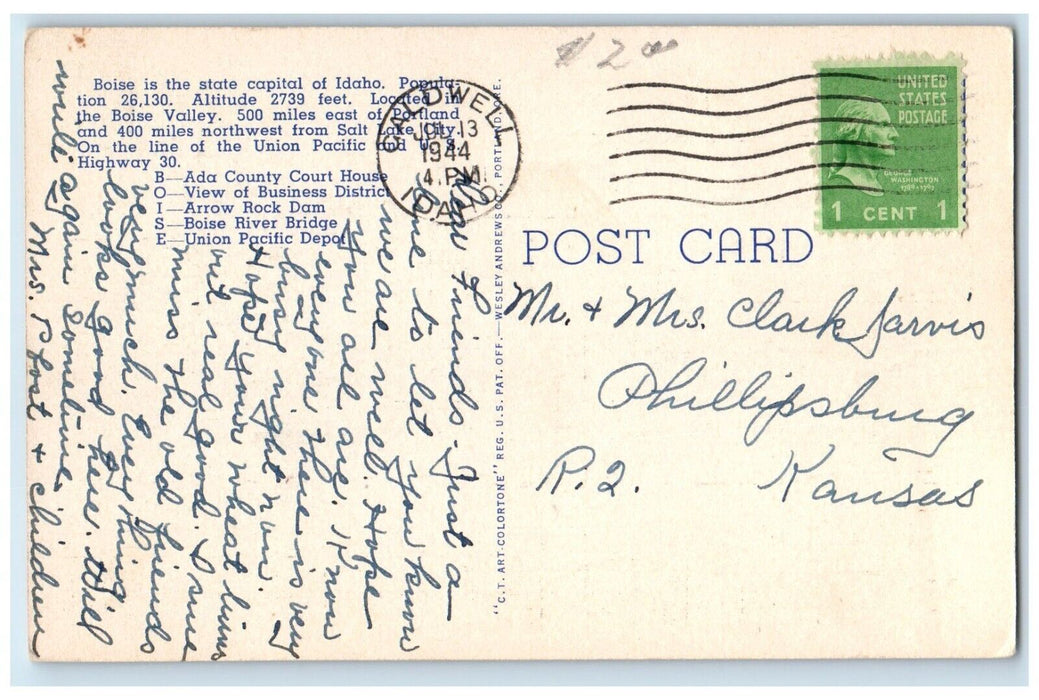 $2.00
Boise is the state capital of Idaho. Popula-
tion 26,130. Altitude 2739 feet. Located in
the Boise Valley. 500 miles east of Portland
and 400 miles northwest from Salt Lake City.
On the line of the Union Pacific and U. S.
Highway 30.
B—Ada County Court House
O—View of Business District
I—Arrow Rock Dam
S—Boise River Bridge
E—Union Pacific Depot
CALDWELL
JUL 13
1944
4 PM
IDAHO
UNITED
STATES
POSTAGE
GEORGE
WASHINGTON
1789-1797
1 CENT 1
POST CARD
"C.T. ART-COLORTONE" REG. U.S. PAT. OFF.—WESLEY ANDREWS CO., PORTLAND, ORE.
Dear Friends - Just a
line to let you know
we are well. Hope
you all are. I know
everyone there is very
busy right now.
Hope your wheat turns
out real good. I sure
miss the old friends
very much. Every thing
looks good here. Will
write again sometime.
Mrs. Post + children
Mr. + Mrs. Clark Jarvis
Phillipsburg
R.2. Kansas